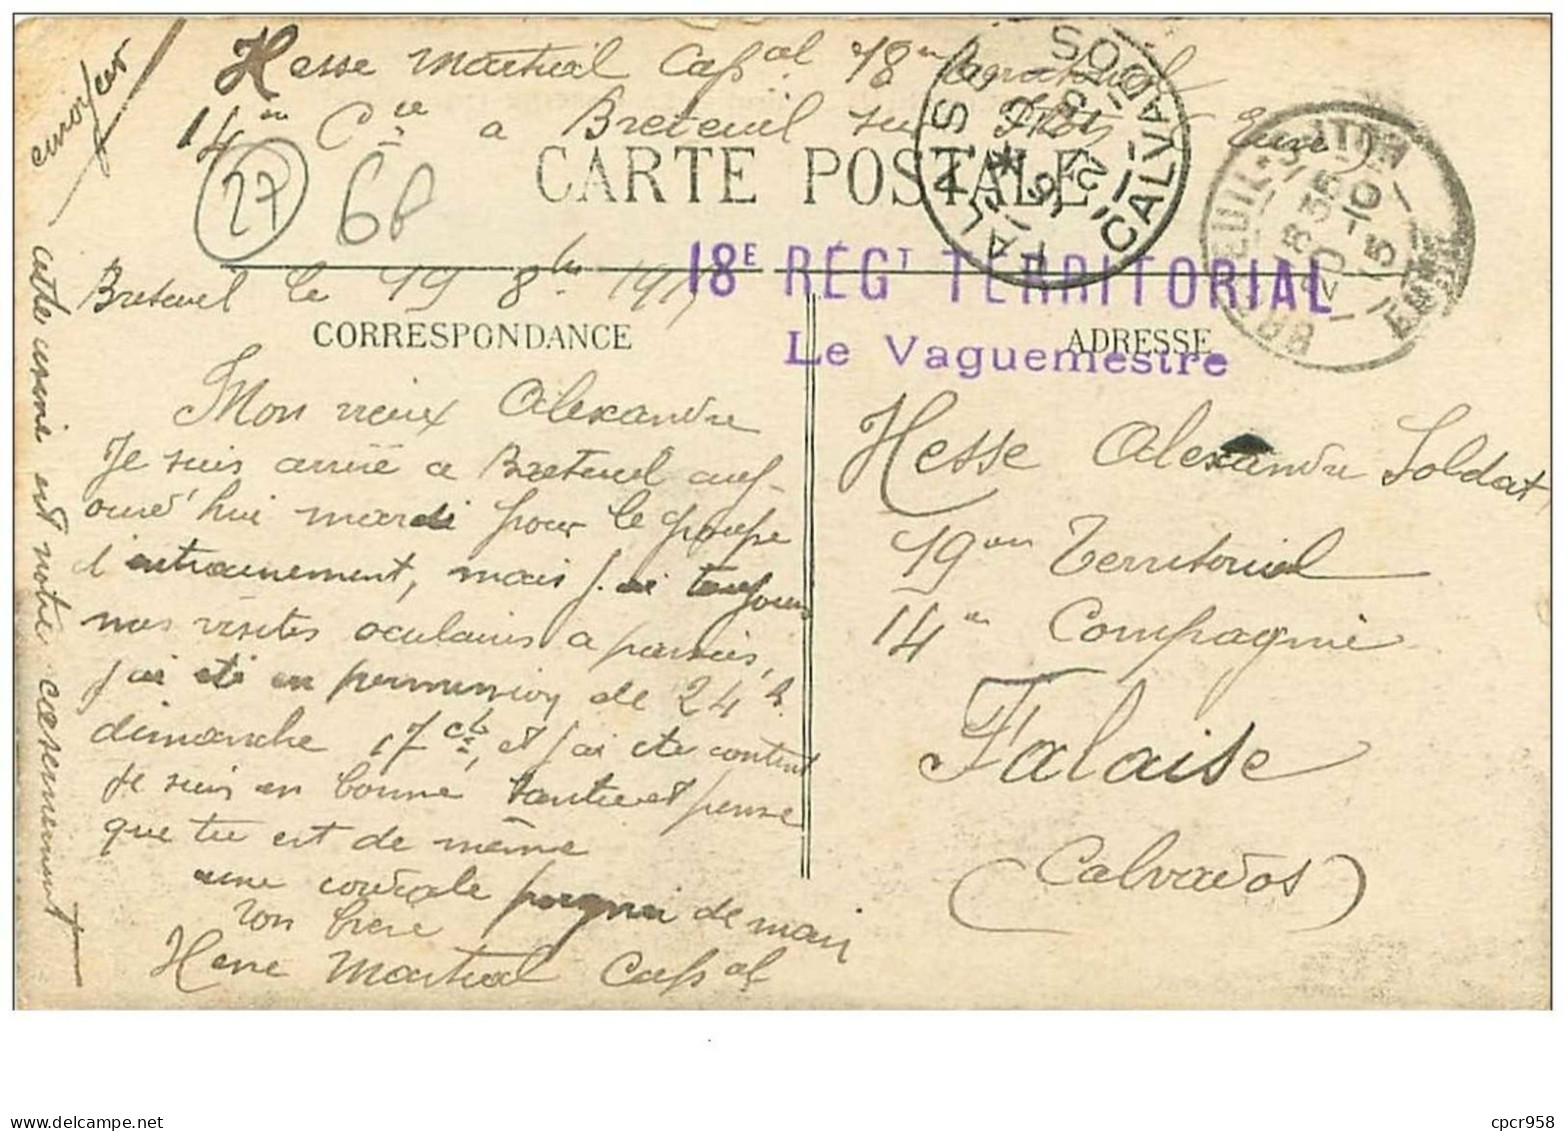 envoyeur
Hesse Martial Cap^al 18^em Territorial
14^em C^ie a Breteuil sur Iton Eure
27
6f
CARTE POSTALE
FALAISE CALVADOS
BRETEUIL-S-ITON EURE
15 35
20 -10
15
18E REGT TERRITORIAL
Le Vaguemestre
Breteuil le 19 8^bre 191
CORRESPONDANCE
ADRESSE
Mon vieux Alexandre
Je suis arrivé a Breteuil auj-
ourd'hui mardi pour le groupe
d'entrainement, mais j'ai toujours
mes visites oculaires a passées,
j'ai été en permission de 24^h.
dimanche 17 c^t, et j'ai été content
Je suis en bonne santée et pense
que tu est de même
une cordiale poignee de main
ton frere
Hesse Martial Cap^al
cette usine est notre casernement
Hesse Alexandre Soldat
19^em Territorial
14^em Compagnie
Falaise
(Calvados)
cpcr958